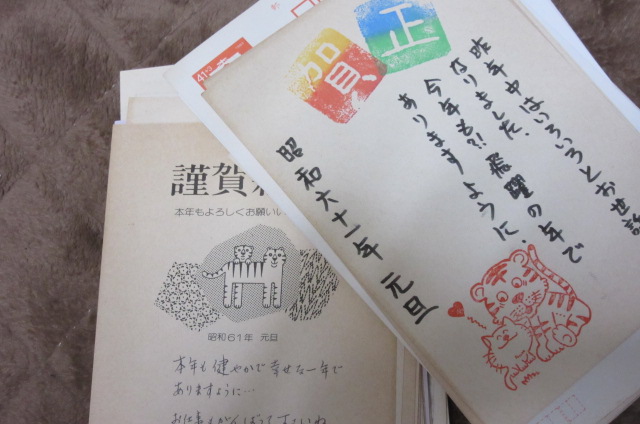 賀正
昨年中はいろいろとお世話
なりました.
今年も!?飛躍の年で
ありますように.
昭和六十一年 元旦
41
謹賀
本年もよろしくお願いい
昭和61年 元旦
本年も健やかで幸せな一年で
ありますように…
お仕事もがんばって下さいね